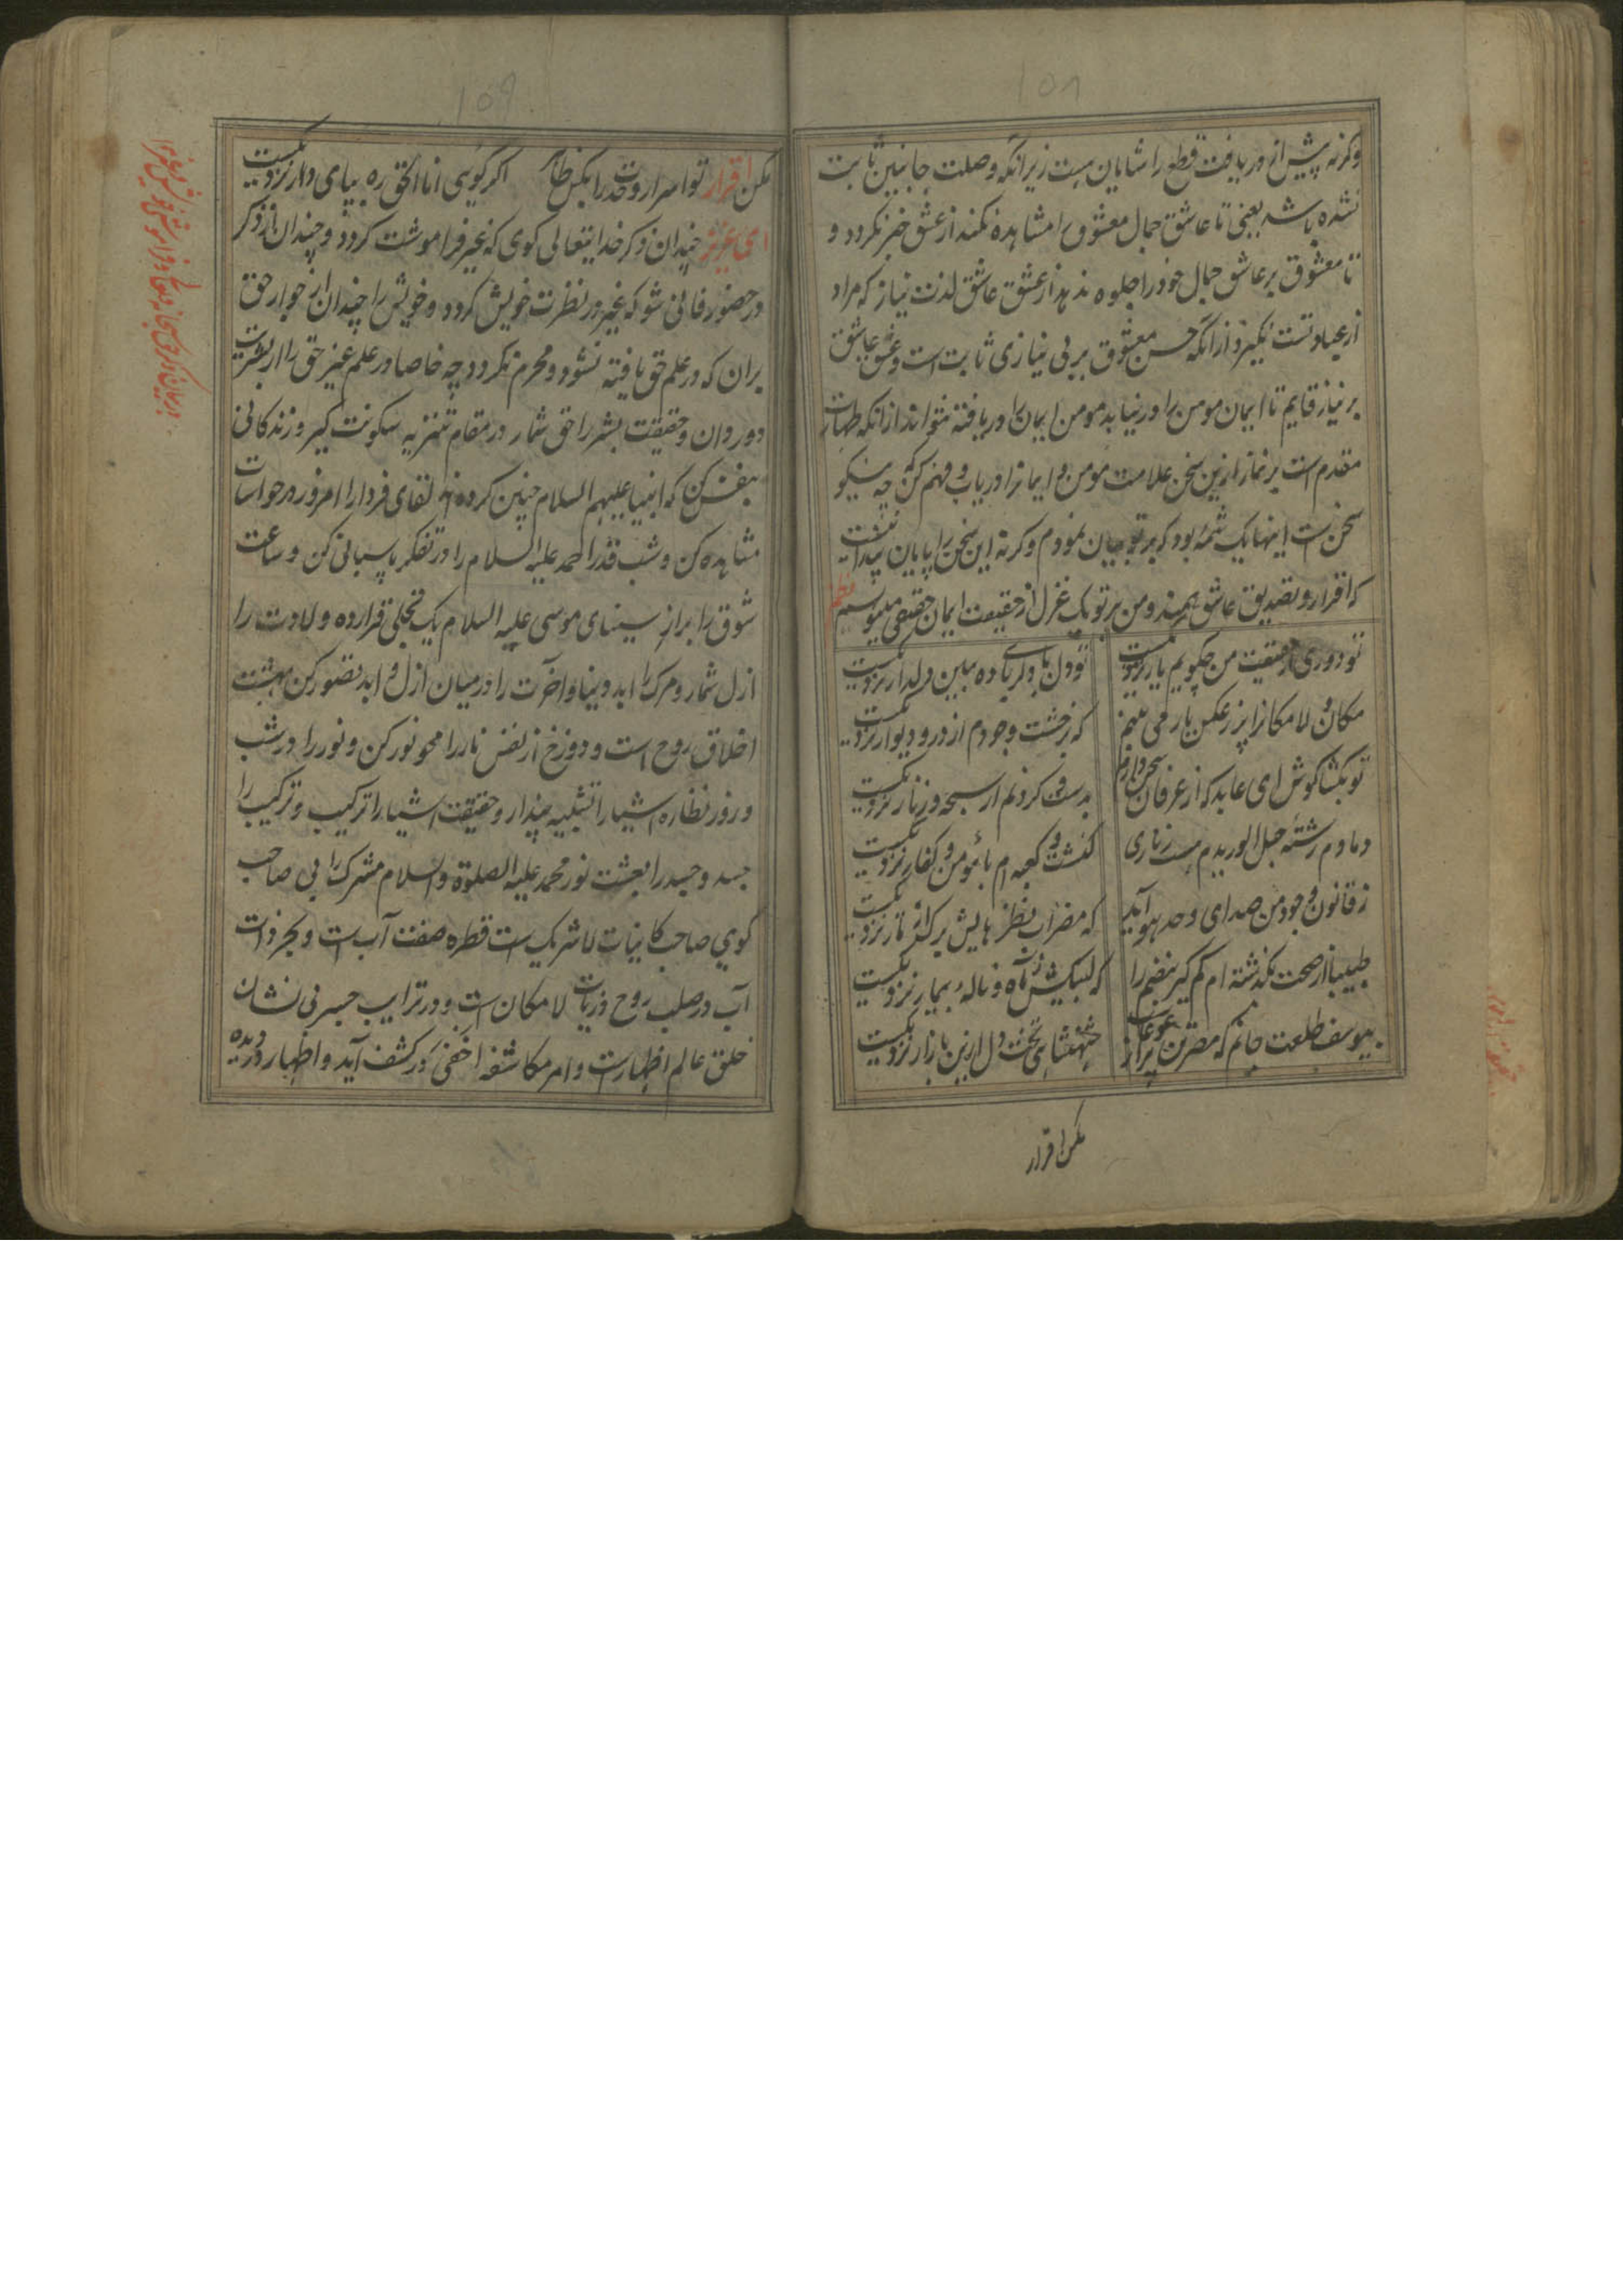 ۱۵۸
وکرنه پیش از دریافت قطع را شایان نیست زیرانکه وصلت جانبین ثابت
نشده باشد یعنی تا عاشق جمال معشوق را مشاهده نکند از عشق خبر نکردد و
تا معشوق بر عاشق جمال خود را جلوه ندهد از عشق عاشق لذت نیاز که مراد
از عبادتست نکیرد از آنکه حسن معشوق بر بی نیازی ثابت است و عشق عاشق
بر نیاز قایم تا ایمان مومن را در نیابد مومن ایمان را دریافته نتواند ازانکه طهارت
مقدم است بر نماز ازین سخن علامت مومن و ایمانرا دریاب و فهم کن که چه نیکو
سخن است اینها یک شمهٔ بود که بر تو بیان نمودم وکرنه این سخن را پایان پیدا نیست
که اقرار و تصدیق عاشق همیند و من بر تو یک غزل از حقیقت ایمان حقیقی مینویسم نظم
تو دوری از حقیقت من چکویم یار نزدیکست
تو دل با دلربا ده ببین دلدار نزدیکست
مکان و لامکانرا پر ز عکس یار می بینم
که ز خشت وجودم از در و دیوار نزدیکست
تو بکشا کوش ای عابد که از عرفان سخن دارم
بدست و کردنم از سبحه و زنار نزدیکست
دمادم رشتهٔ حبل الوریدم هست زناری
کنشت و کعبه ام با مومن و کفار نزدیکست
ز قانون وجود من صدای وحدهو آید
که مضراب نظر هایش بر اکثر تار نزدیکست
طبیبا از صحت بکذشته ام کم کیر نبضم را
که لبیکش ز آه و نالهٔ بیمار نزدیکست
بیوسف طلعت جانم که مصر تن پر از غوغاست
شهنشاهی تخت دل ازین بازار نزدیکست
مکن اقرار
۱۵۹
مکن اقرار تو اسرار وحدت را مکن ظاهر اکر کویی انا الحق ره بپای دار نزدیکست
ای عزیز چندان ذکر خدایتعالی کوی که غیر فراموشت کردد و چندان از ذکر
در حضور فانی شو که غیر در نظرت خویش کردد و خویش را چندان از جوار حق
بران که در علم حق یافته نشود و محرم نکردد چه خاصا در علم غیر حق را از بشریت
دور دان و حقیقت بشر را حق شمار در مقام تنزیه سکونت کیر و زندکانی
بیغش کن که انبیا علیهم السلام چنین کرده اند لقای فردا را امروز در حواسات
مشاهده کن و شب قدر احمد علیه السلام را در تفکر پاسبانی کن و ساعت
شوق را براز سینای موسی علیه السلام یک تجلی قرار ده و لادت را
ازل شمار و مرک را ابد و دنیا و آخرت را درمیان ازل و ابد تصور کن بهشت
اخلاق روح است و دوزخ از نفس نار را محو نور کن و نور را در شب
و روز نظاره اشیا را تشبیه پندار و حقیقت اشیا را ترکیب و ترکیب را
جسد و جسد را بعثت نور محمد علیه الصلوة والسلام مشرک را بی صاحب
کوی صاحب کاینات لا شریک است قطره صفت آب است و بحر ذات
آب در صلب روح ذریات لامکان است و در ترایب جسر نی نشان
خلق عالم اظهارست و امر مکاشفه اخفی که در کشف آید و اظهار در دیده